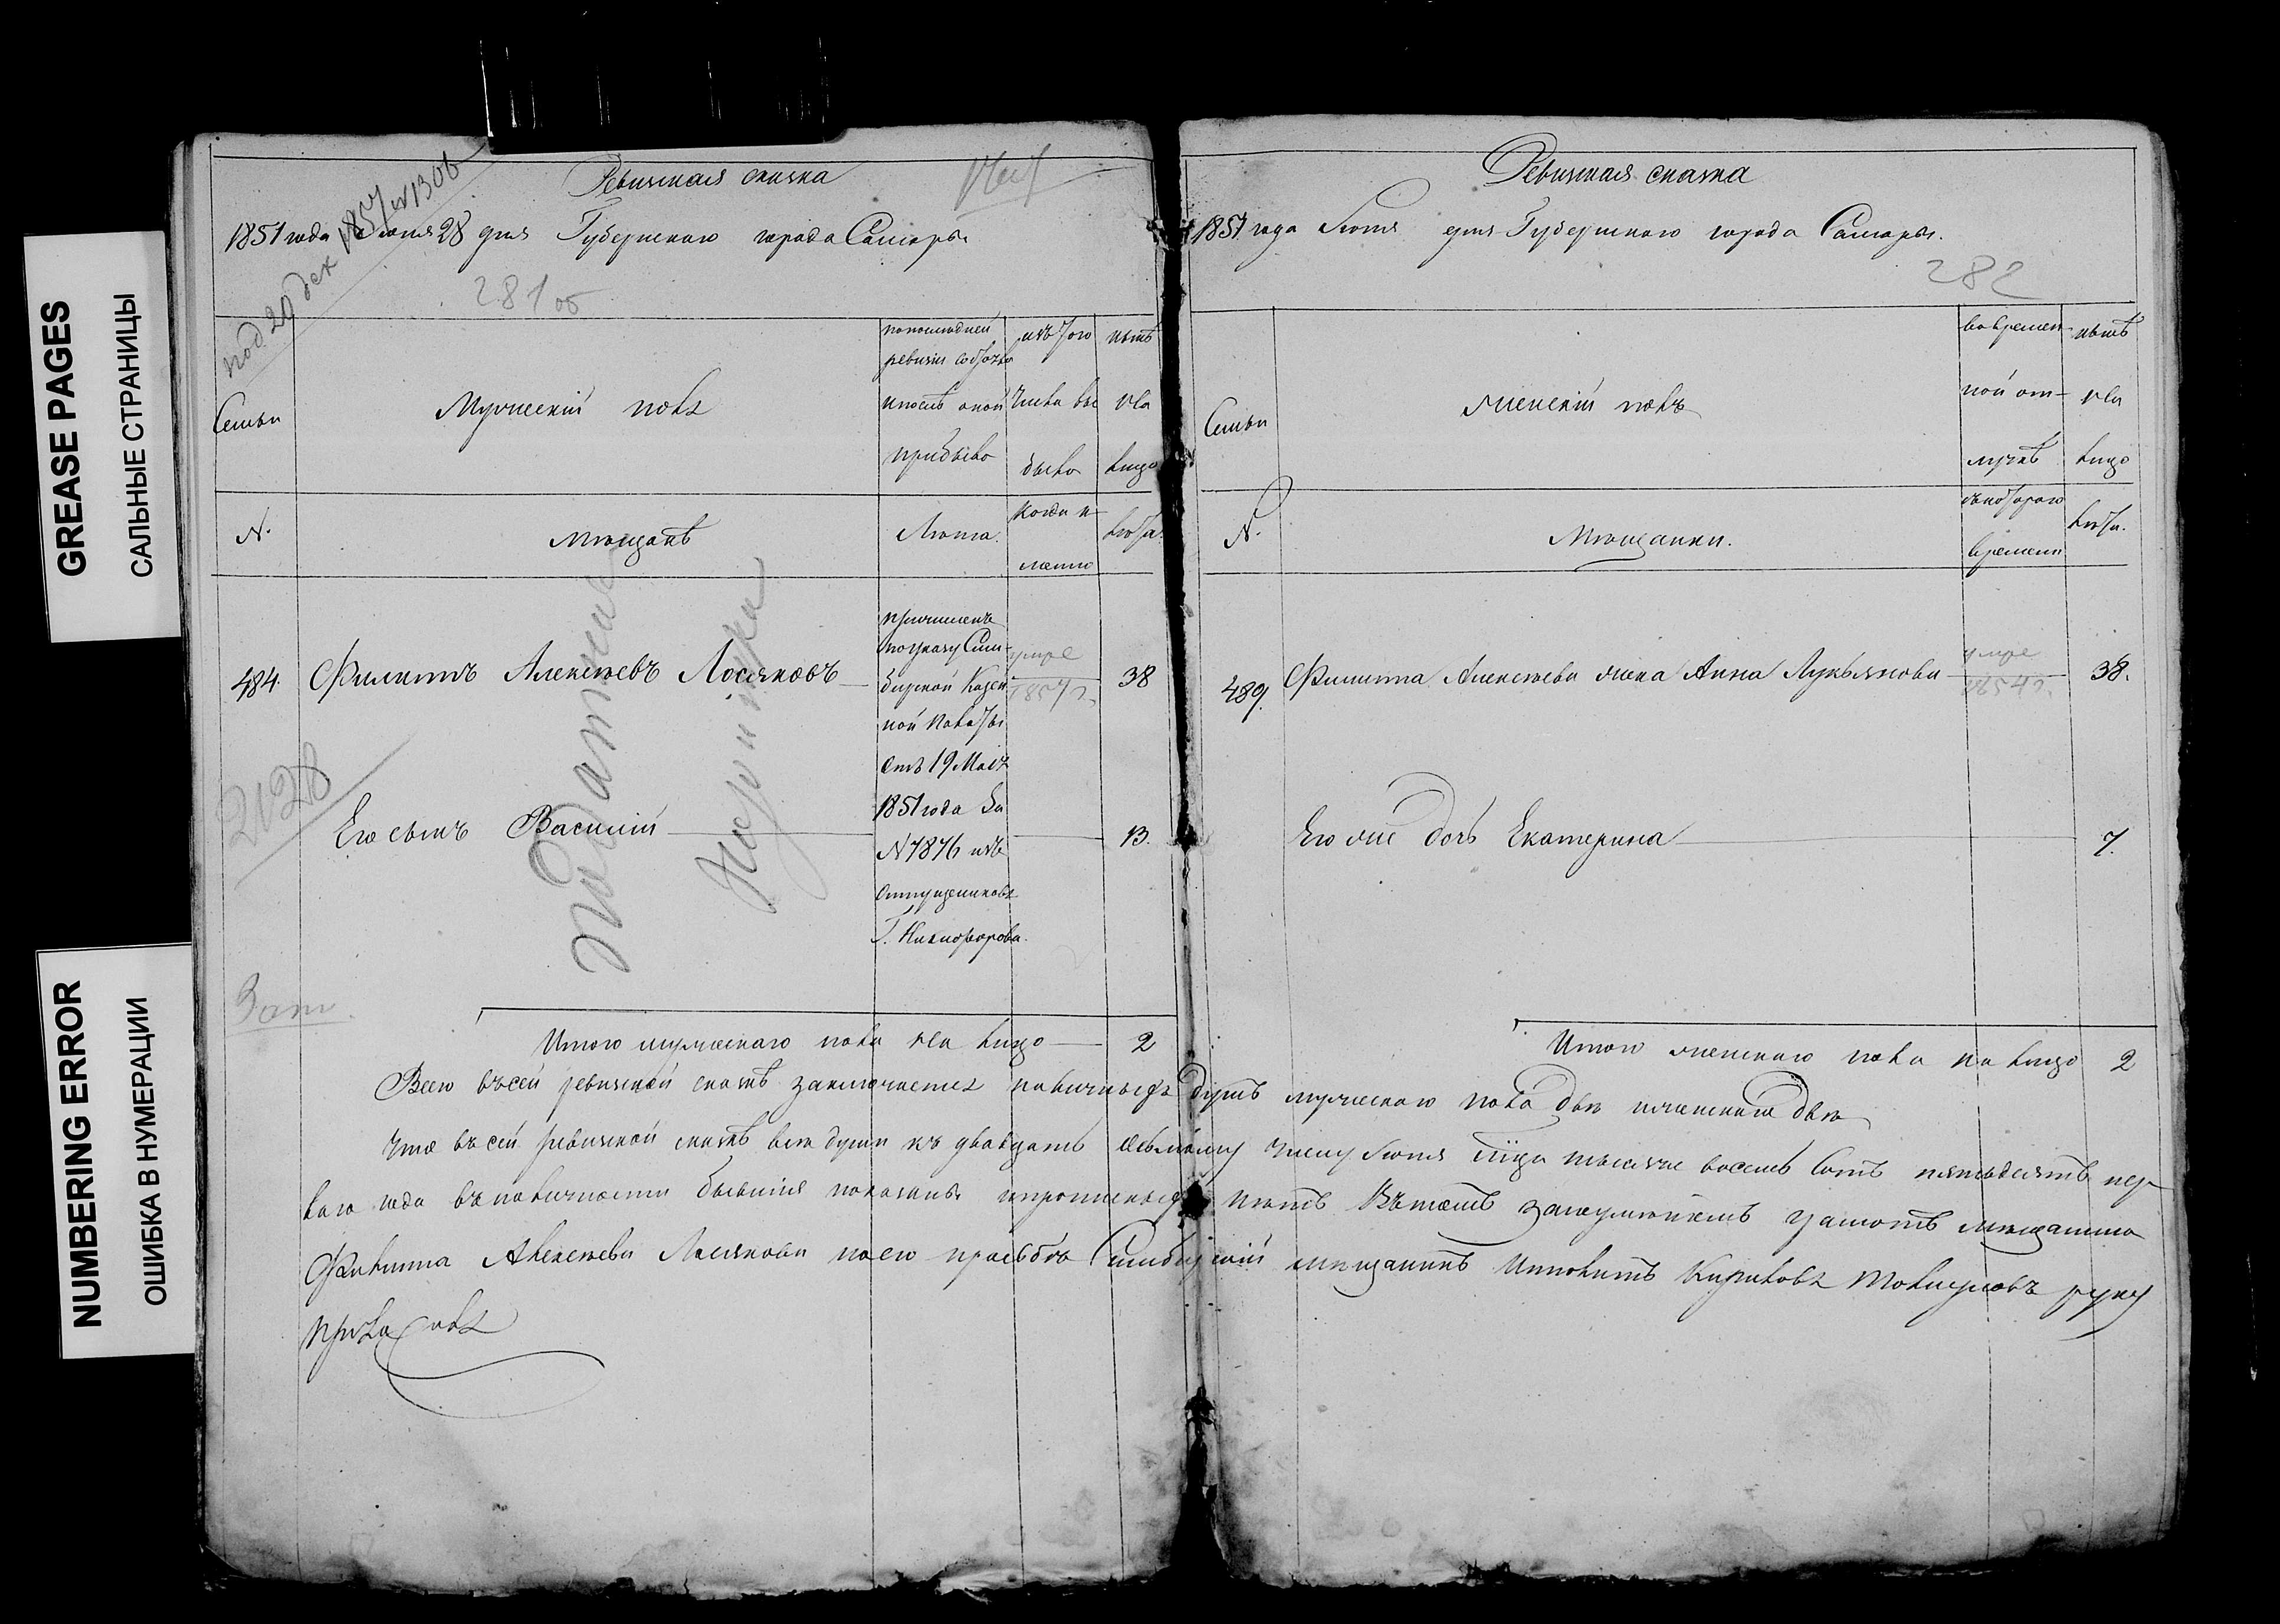 GREASE PAGES
САЛЬНЫЕ СТРАНИЦЫ
NUMBERING ERROR
ОШИБКА В НУМЕРАЦИИ
Ревизская сказка
1851 года Июня 28 дня Губернскаго города Самары
под 20 дек 1857 № 1306
281 об
Семьи
Мужескій полъ
по последней
ревизіи состояло
и после оной
прибыло
изъ того
числа вы
было
ныне
на
лицо
№
Мещане
Лета.
когда и
менно
лета.
484.
Филиппъ Алексеевъ Лосяковъ
причисленъ
по указу Сим
бирской Казен
ной Палаты
отъ 19 Мая
1851 года За
№ 7876 изъ
отпущенниковъ
Г. Никифорова.
умре
1857 г.
38
2128
Его сынъ Василій
13.
Итого мужескаго пола на лицо 2
Ревизская сказка
1851 года Июня дня Губернскаго города Самары.
282
Семьи
Женскій полъ
во времен
ной от
лучке
ныне
на
лицо
№
Мещанки.
съ котораго
времени
лета.
489.
Филиппа Алексеева жена Анна Лукьянова
умре
1854 г.
38.
Его же дочь Екатерина
7.
Итого женскаго пола на лицо 2
Всего въ сей ревизской сказке заключается наличныхъ душъ мужескаго пола две и женскаго две
Что въ сей ревизской сказке все души къ двадцать осьмому числу Июня сего тысяча восемь сотъ пятьдесятъ пер
ваго года въ наличности бывшія показаны и прописныхъ нетъ. Въ томъ
Филиппа Алексеева Лосякова по его прозьбе Симбирскій мещанинъ Кириловъ руку
приложилъ